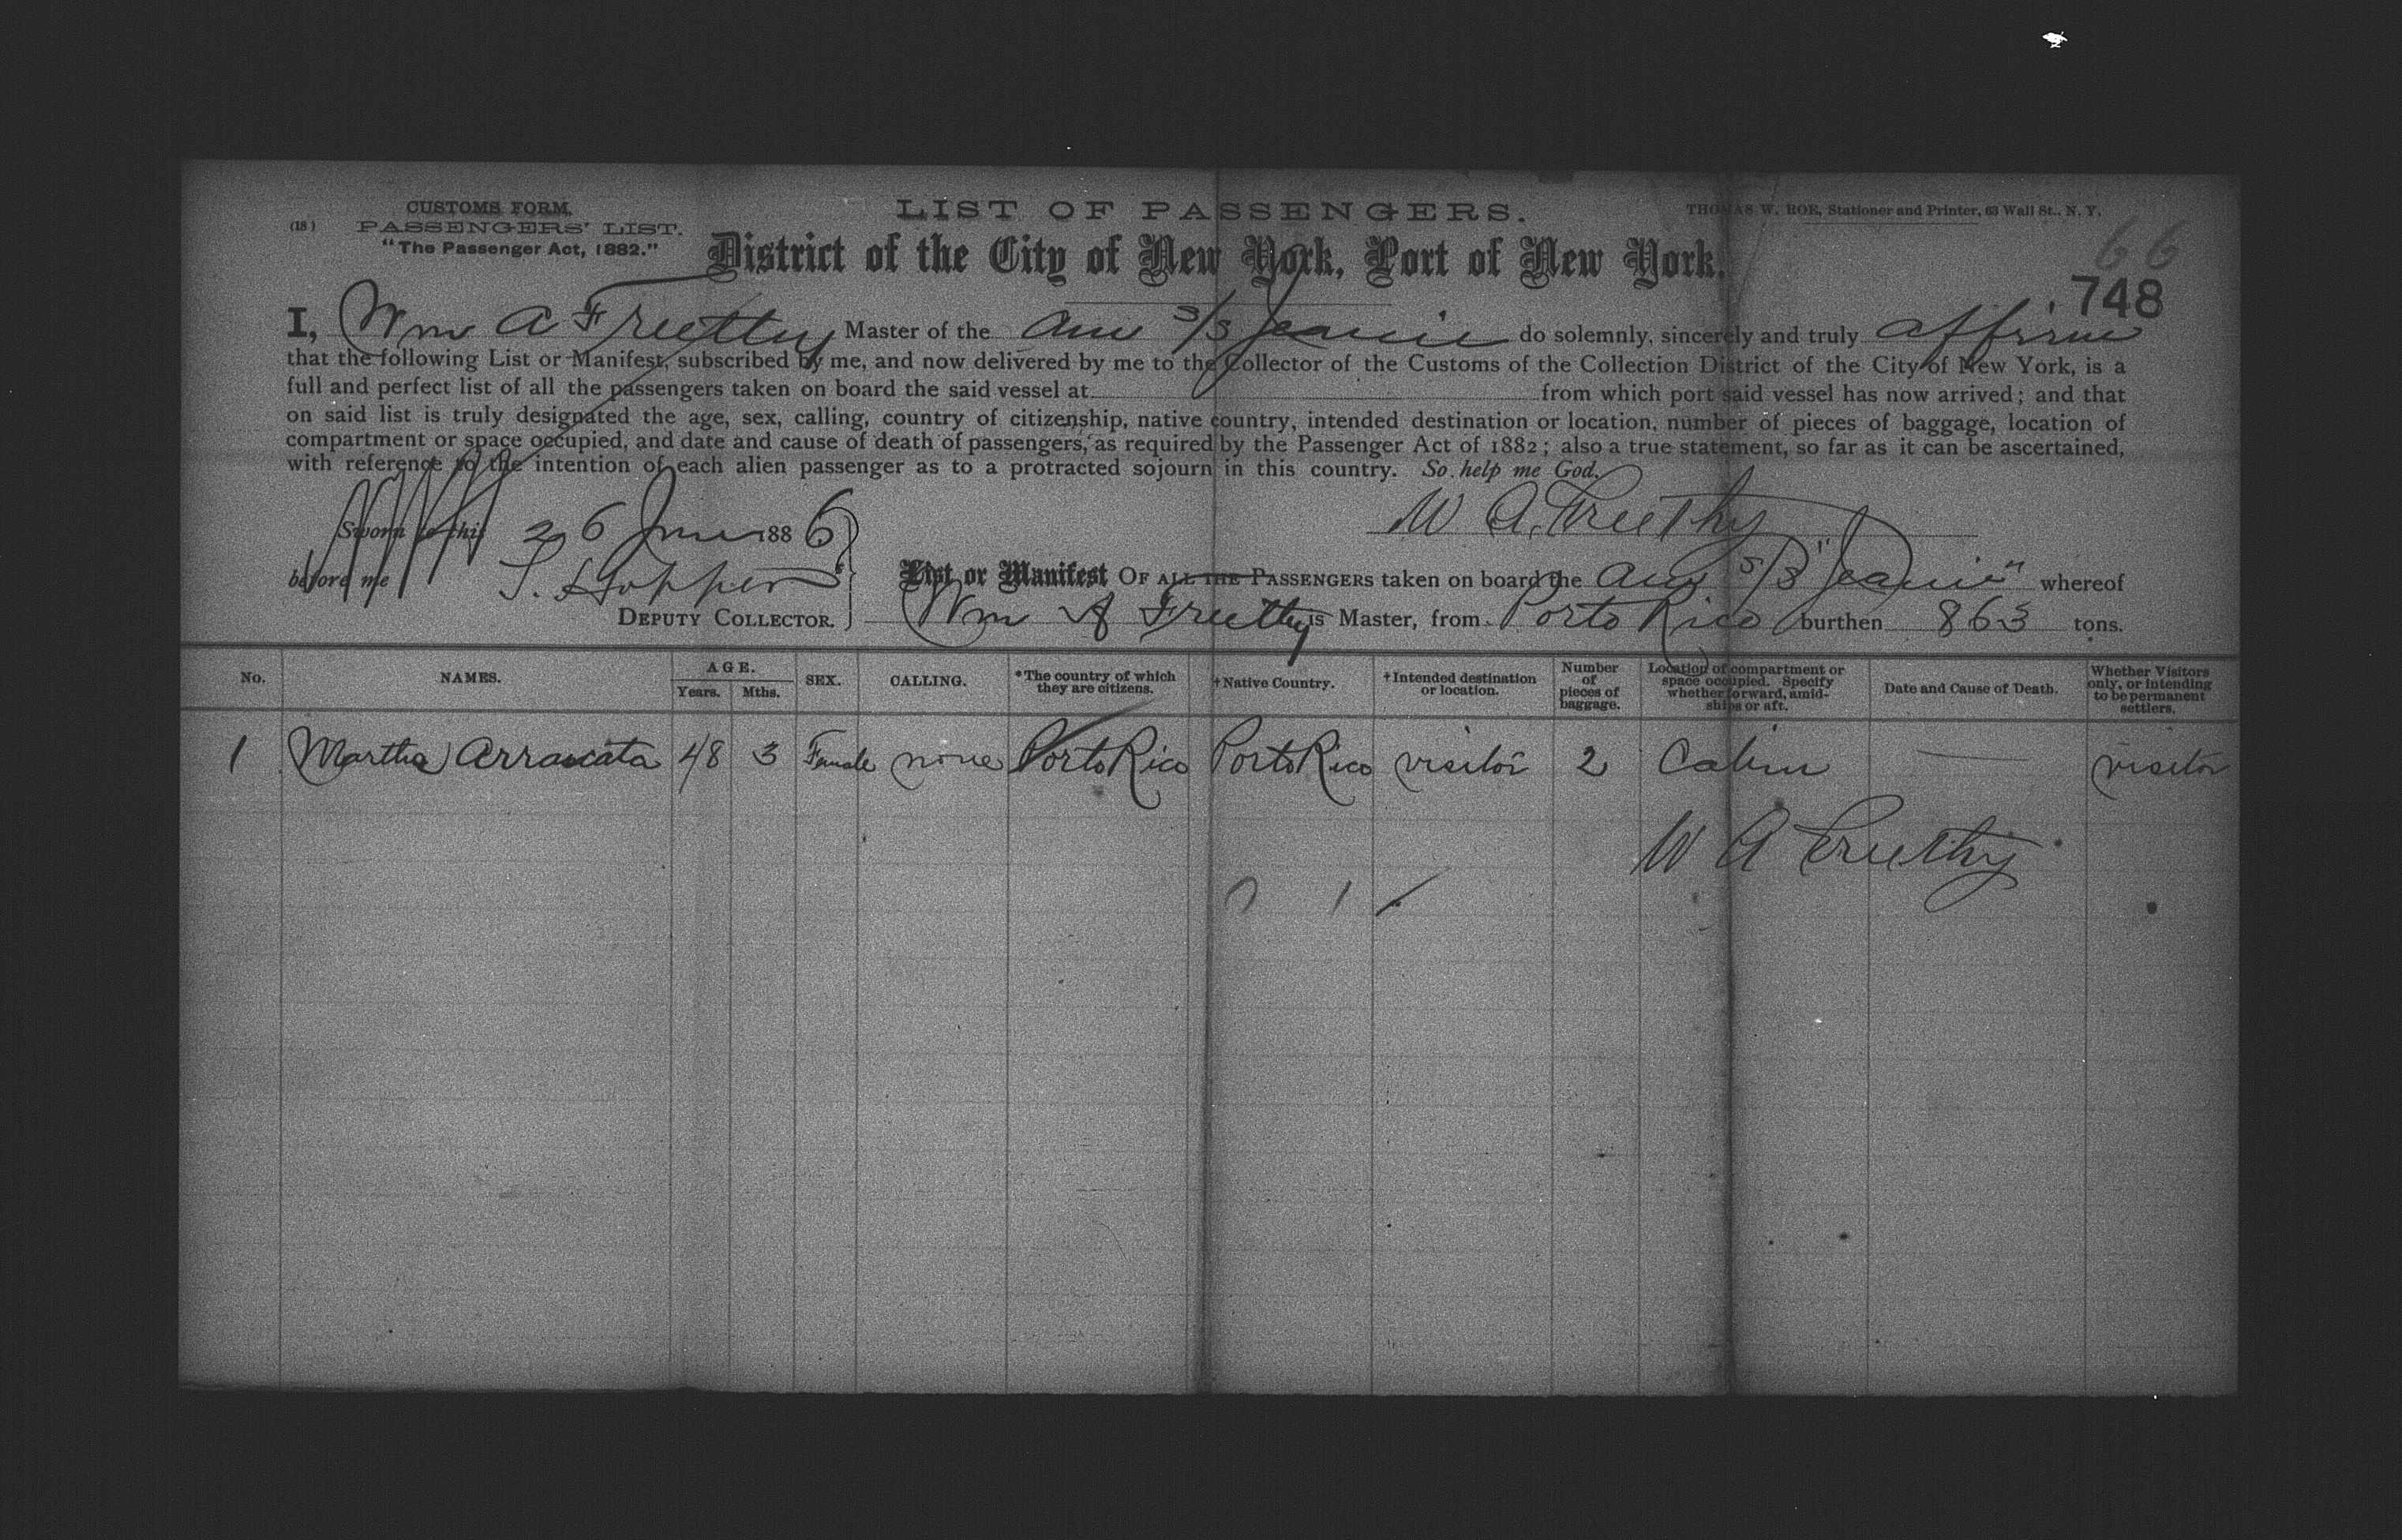 CUSTOMS FORM.
(18) PASSENGERS' LIST.
"The Passenger Act, 1882."
LIST OF PASSENGERS.
THOMAS W. ROE, Stationer and Printer, 63 Wall St., N. Y.
District of the City of New York, Port of New York.
66
748
I, Wm A Freethy Master of the Am S/S Jeanie do solemnly, sincerely and truly affirm
that the following List or Manifest, subscribed by me, and now delivered by me to the Collector of the Customs of the Collection District of the City of New York, is a
full and perfect list of all the passengers taken on board the said vessel at from which port said vessel has now arrived; and that
on said list is truly designated the age, sex, calling, country of citizenship, native country, intended destination or location, number of pieces of baggage, location of
compartment or space occupied, and date and cause of death of passengers, as required by the Passenger Act of 1882; also a true statement, so far as it can be ascertained,
with reference to the intention of each alien passenger as to a protracted sojourn in this country. So help me God.
W A. Freethy
Sworn to this 26 June 1886
before me S. Hopper
DEPUTY COLLECTOR.
List or Manifest OF ALL THE PASSENGERS taken on board the Am S/S "Jeanie" whereof
Wm A Freethy is Master, from Porto Rico burthen 863 tons.
No. NAMES. AGE. Years. Mths. SEX. CALLING. *The country of which they are citizens. †Native Country. †Intended destination or location. Number of pieces of baggage. Location of compartment or space occupied. Specify whether forward, amidships or aft. Date and Cause of Death. Whether Visitors only, or intending to be permanent settlers.
1 Martha Arraucata 48 3 Female none Porto Rico Porto Rico visitor 2 Cabin — visitor
W A Freethy